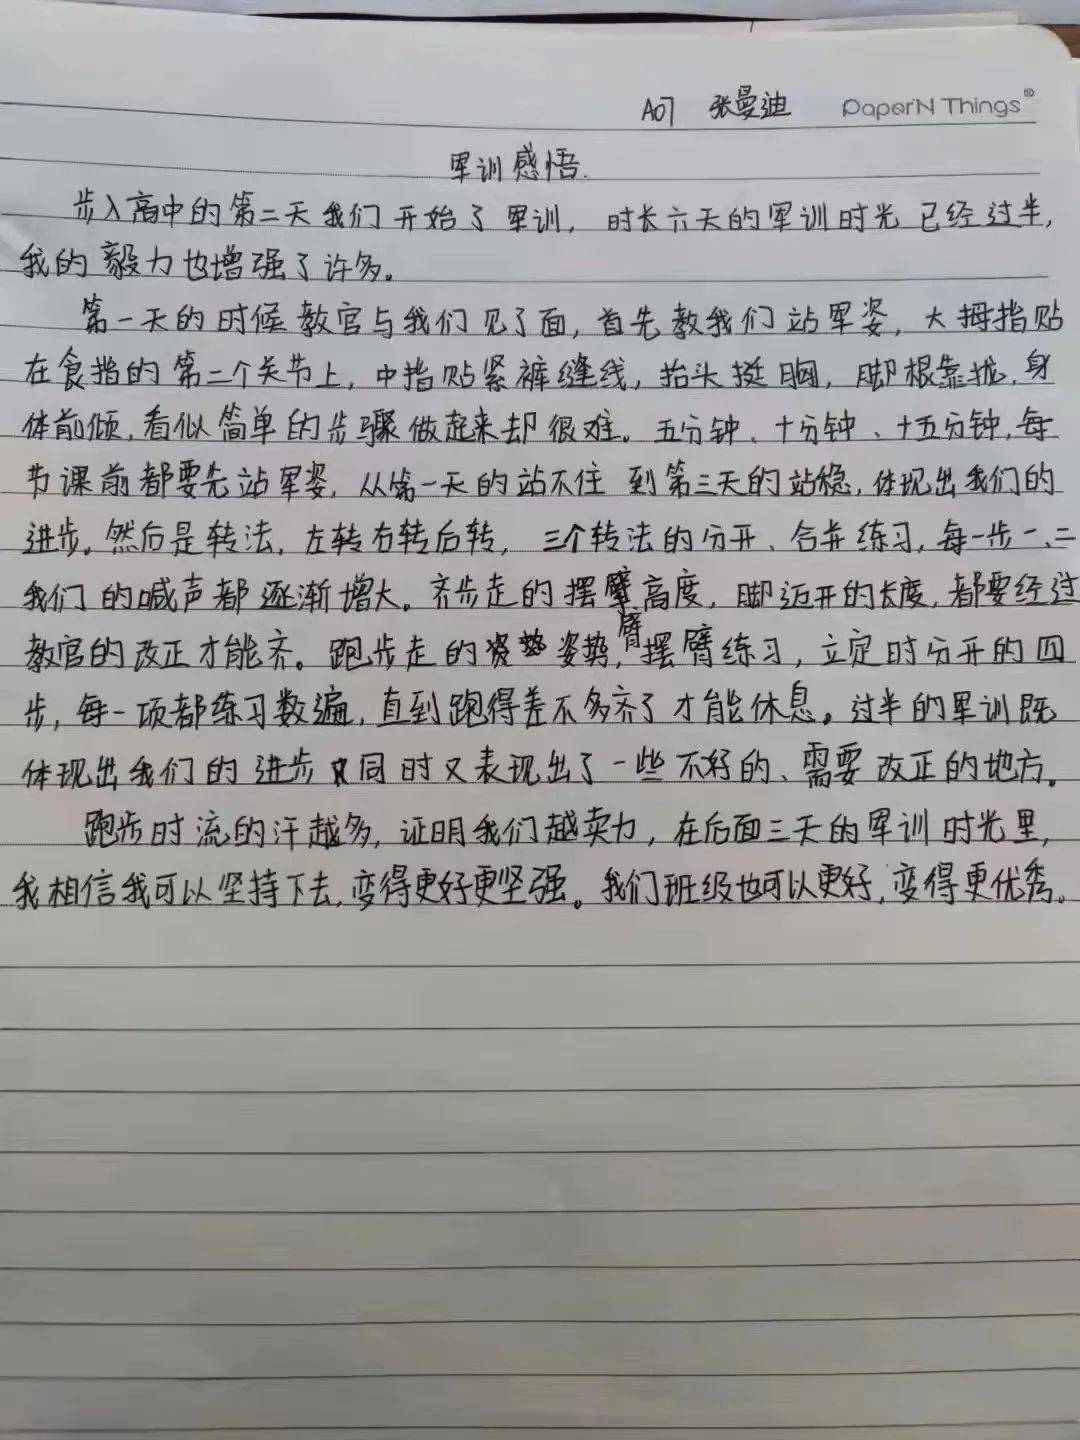 A07 张曼迪 PaperN Things®
军训感悟.
步入高中的第二天我们开始了军训，时长六天的军训时光已经过半，
我的毅力也增强了许多。
第一天的时候教官与我们见了面，首先教我们站军姿，大拇指贴
在食指的第二个关节上，中指贴紧裤缝线，抬头挺胸，脚根靠拢，身
体前倾，看似简单的步骤做起来却很难。五分钟、十分钟、十五分钟，每
节课前都要先站军姿，从第一天的站不住到第三天的站稳，体现出我们的
进步。然后是转法，左转右转后转，三个转法的分开、合并练习，每一步一、二
我们的喊声都逐渐增大。齐步走的摆臂高度，脚迈开的长度，都要经过
教官的改正才能齐。跑步走的姿势，摆臂练习，立定时分开的四
步，每一项都练习数遍，直到跑得差不多齐了才能休息。过半的军训既
体现出我们的进步同时又表现出了一些不好的、需要改正的地方。
跑步时流的汗越多，证明我们越卖力，在后面三天的军训时光里，
我相信我可以坚持下去，变得更好更坚强。我们班级也可以更好，变得更优秀。